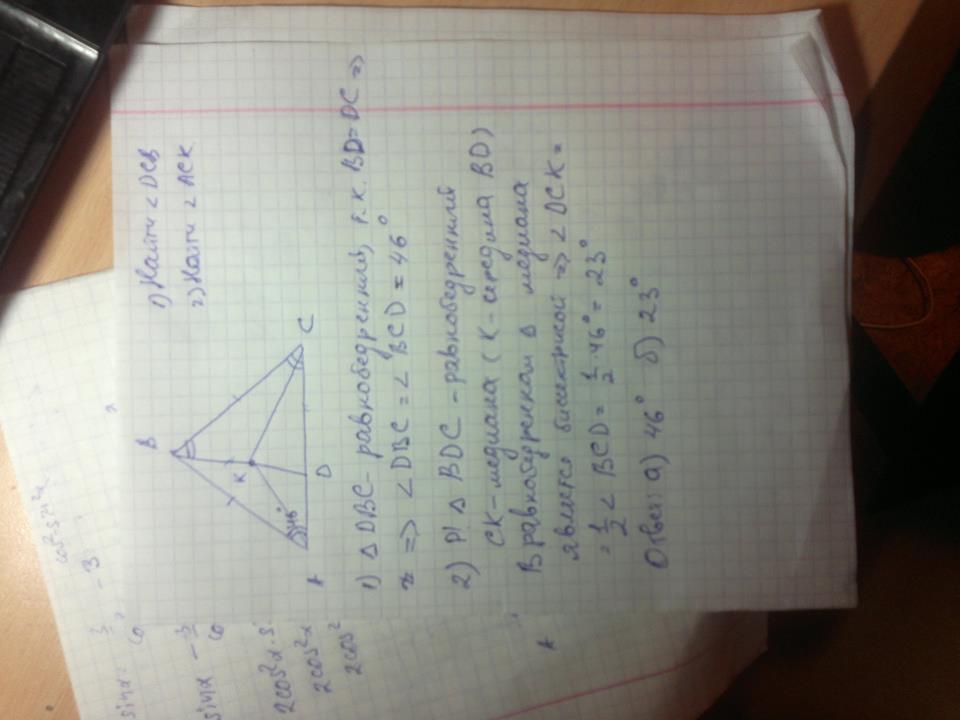 1) Найти < DCB
2) Найти < ACK
B
K
46°
A
D
C
1) Δ DBC - равнобедренний, т.к. BD = DC =>
=> < DBC = < BCD = 46°
2) Р/ Δ BDC - равнобедренний
CK - медиана (K - середина BD)
В равнобедренном Δ медиана
является биссектрисой => < DCK =
= 1/2 < BCD = 1/2 · 46° = 23°
Ответ: а) 46° б) 23°
cos² - sin²x
- 3
sinx
sinx -
2cos²x · s
2cos²x
2cos²
A